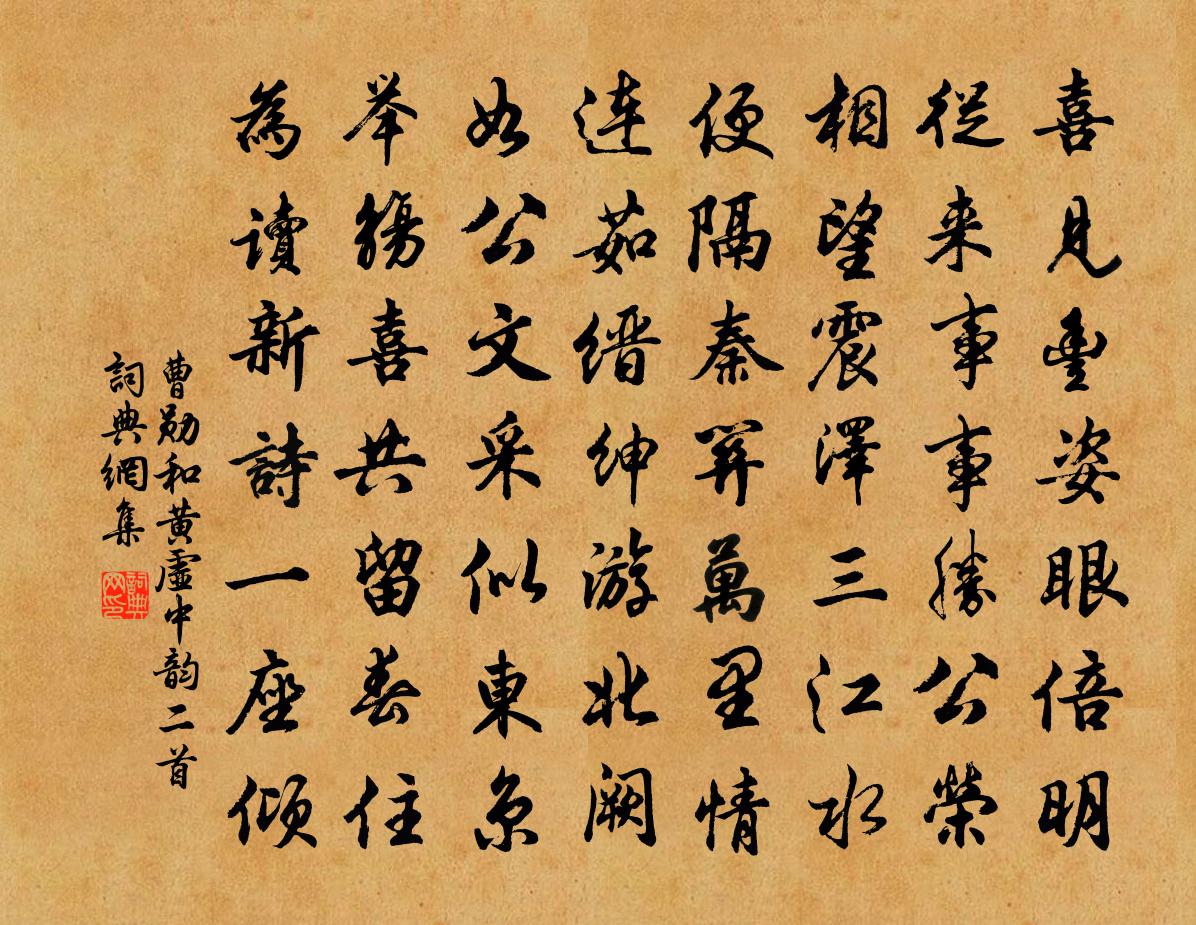 喜見豐姿眼倍明
從来事事勝公榮
相望震澤三江水
便隔秦關萬里情
連茹縉紳游北闕
如公文采似東京
举觴喜共留春住
為讀新詩一座傾
曹勛和黃虛中韵二首
詞典網集
詞典网印